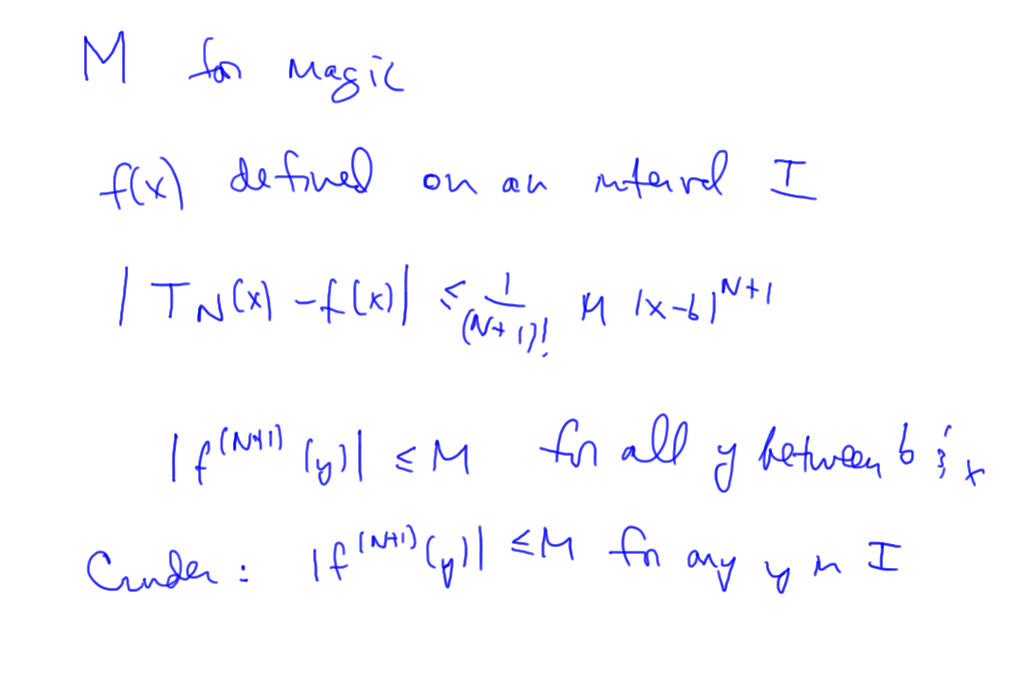 M for magic
f(x) defined on an interval I
| T_N(x) - f(x) | ≤ 1/(N+1)! M |x-b|^{N+1}
| f^{(N+1)}(y) | ≤ M for all y between b & x
Cruder: | f^{(N+1)}(y) | ≤ M for any y in I